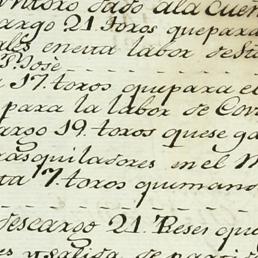 dado ala Cuen
argo 21 toros quepara
ales enesta labor de Sta
P. Jose
17. toros quepara el
para la labor de Cov
argo 19. toros quese ga
rasquiladores en el M
ta 7. toros qumano
descargo 21. Reses que